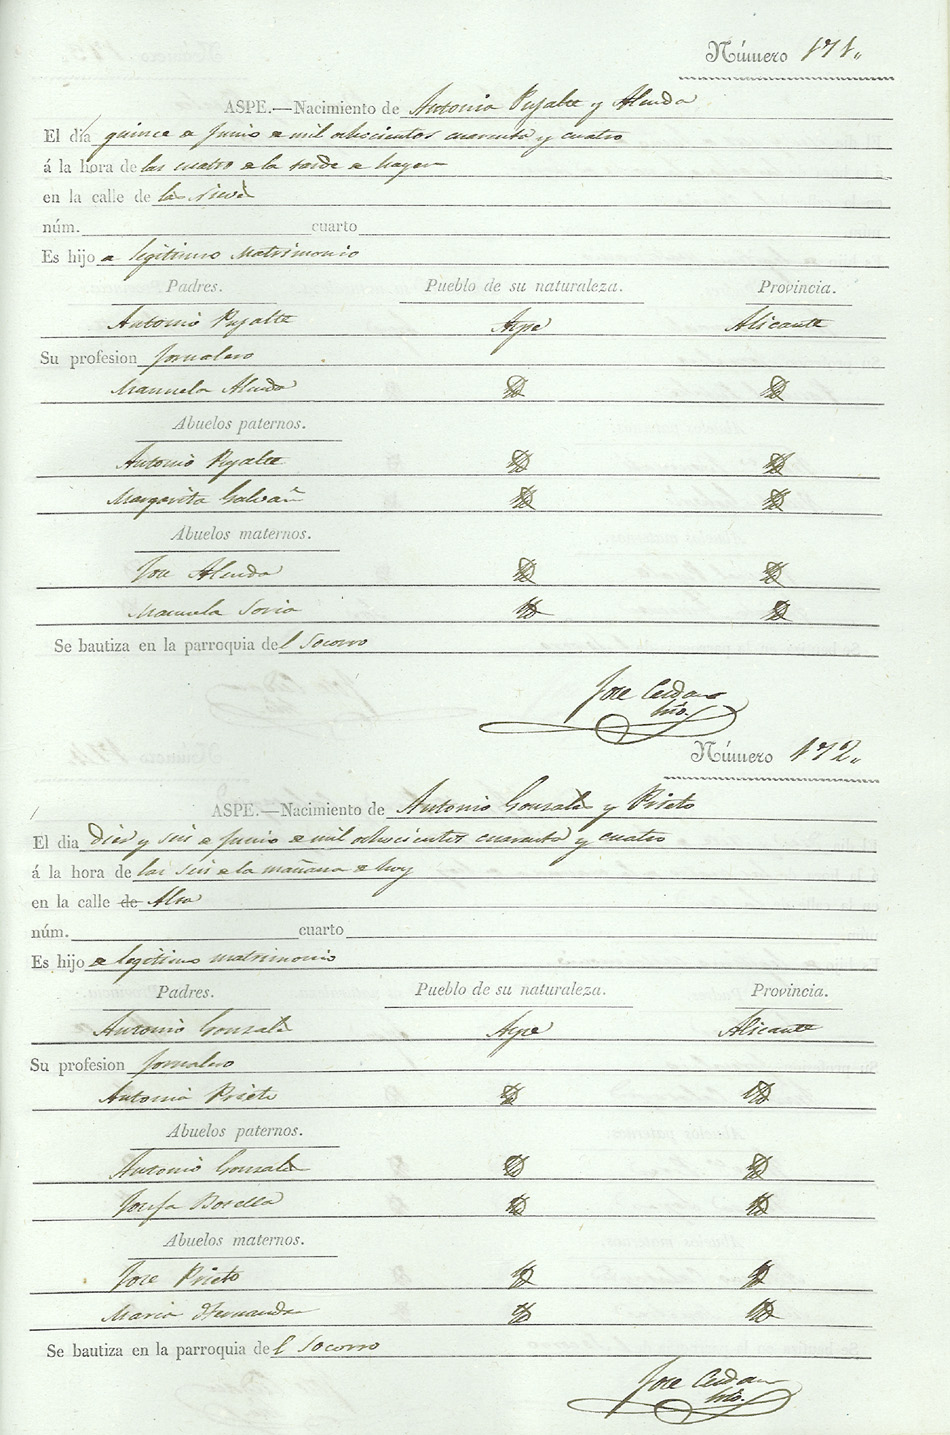 Número 171.
ASPE.—Nacimiento de Antonia Pujalte y Alenda
El día quince de Junio de mil ochocientos cuarenta y cuatro
á la hora de las cuatro de la tarde de hayer
en la calle de la
núm. cuarto
Es hijo de legitimo Matrimonio
Padres. Pueblo de su naturaleza. Provincia.
Antonio Pujalte Aspe Alicante
Su profesion Jornalero
Manuela Alenda
Abuelos paternos.
Antonio Pujalte
Margarita Galvañ
Abuelos maternos.
Jose Alenda
Manuela Soria
Se bautiza en la parroquia del Socorro
Jose Cerdan
Número 172.
ASPE.—Nacimiento de Antonio Gonzalez y Prieto
El dia diez y seis de Junio de mil ochocientos cuarenta y cuatro
á la hora de las seis de la mañana de hoy
en la calle de
núm. cuarto
Es hijo de legitimo matrimonio
Padres. Pueblo de su naturaleza. Provincia.
Antonio Gonzalez Aspe Alicante
Su profesion Jornalero
Antonia Prieto
Abuelos paternos.
Antonio Gonzalez
Josefa Botella
Abuelos maternos.
Jose Prieto
Maria Hernandez
Se bautiza en la parroquia del Socorro
Jose Cerdan